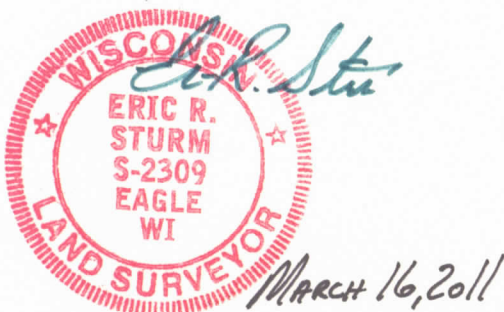 WISCONSIN
ERIC R.
STURM
S-2309
EAGLE
WI
LAND SURVEYOR
MARCH 16, 2011